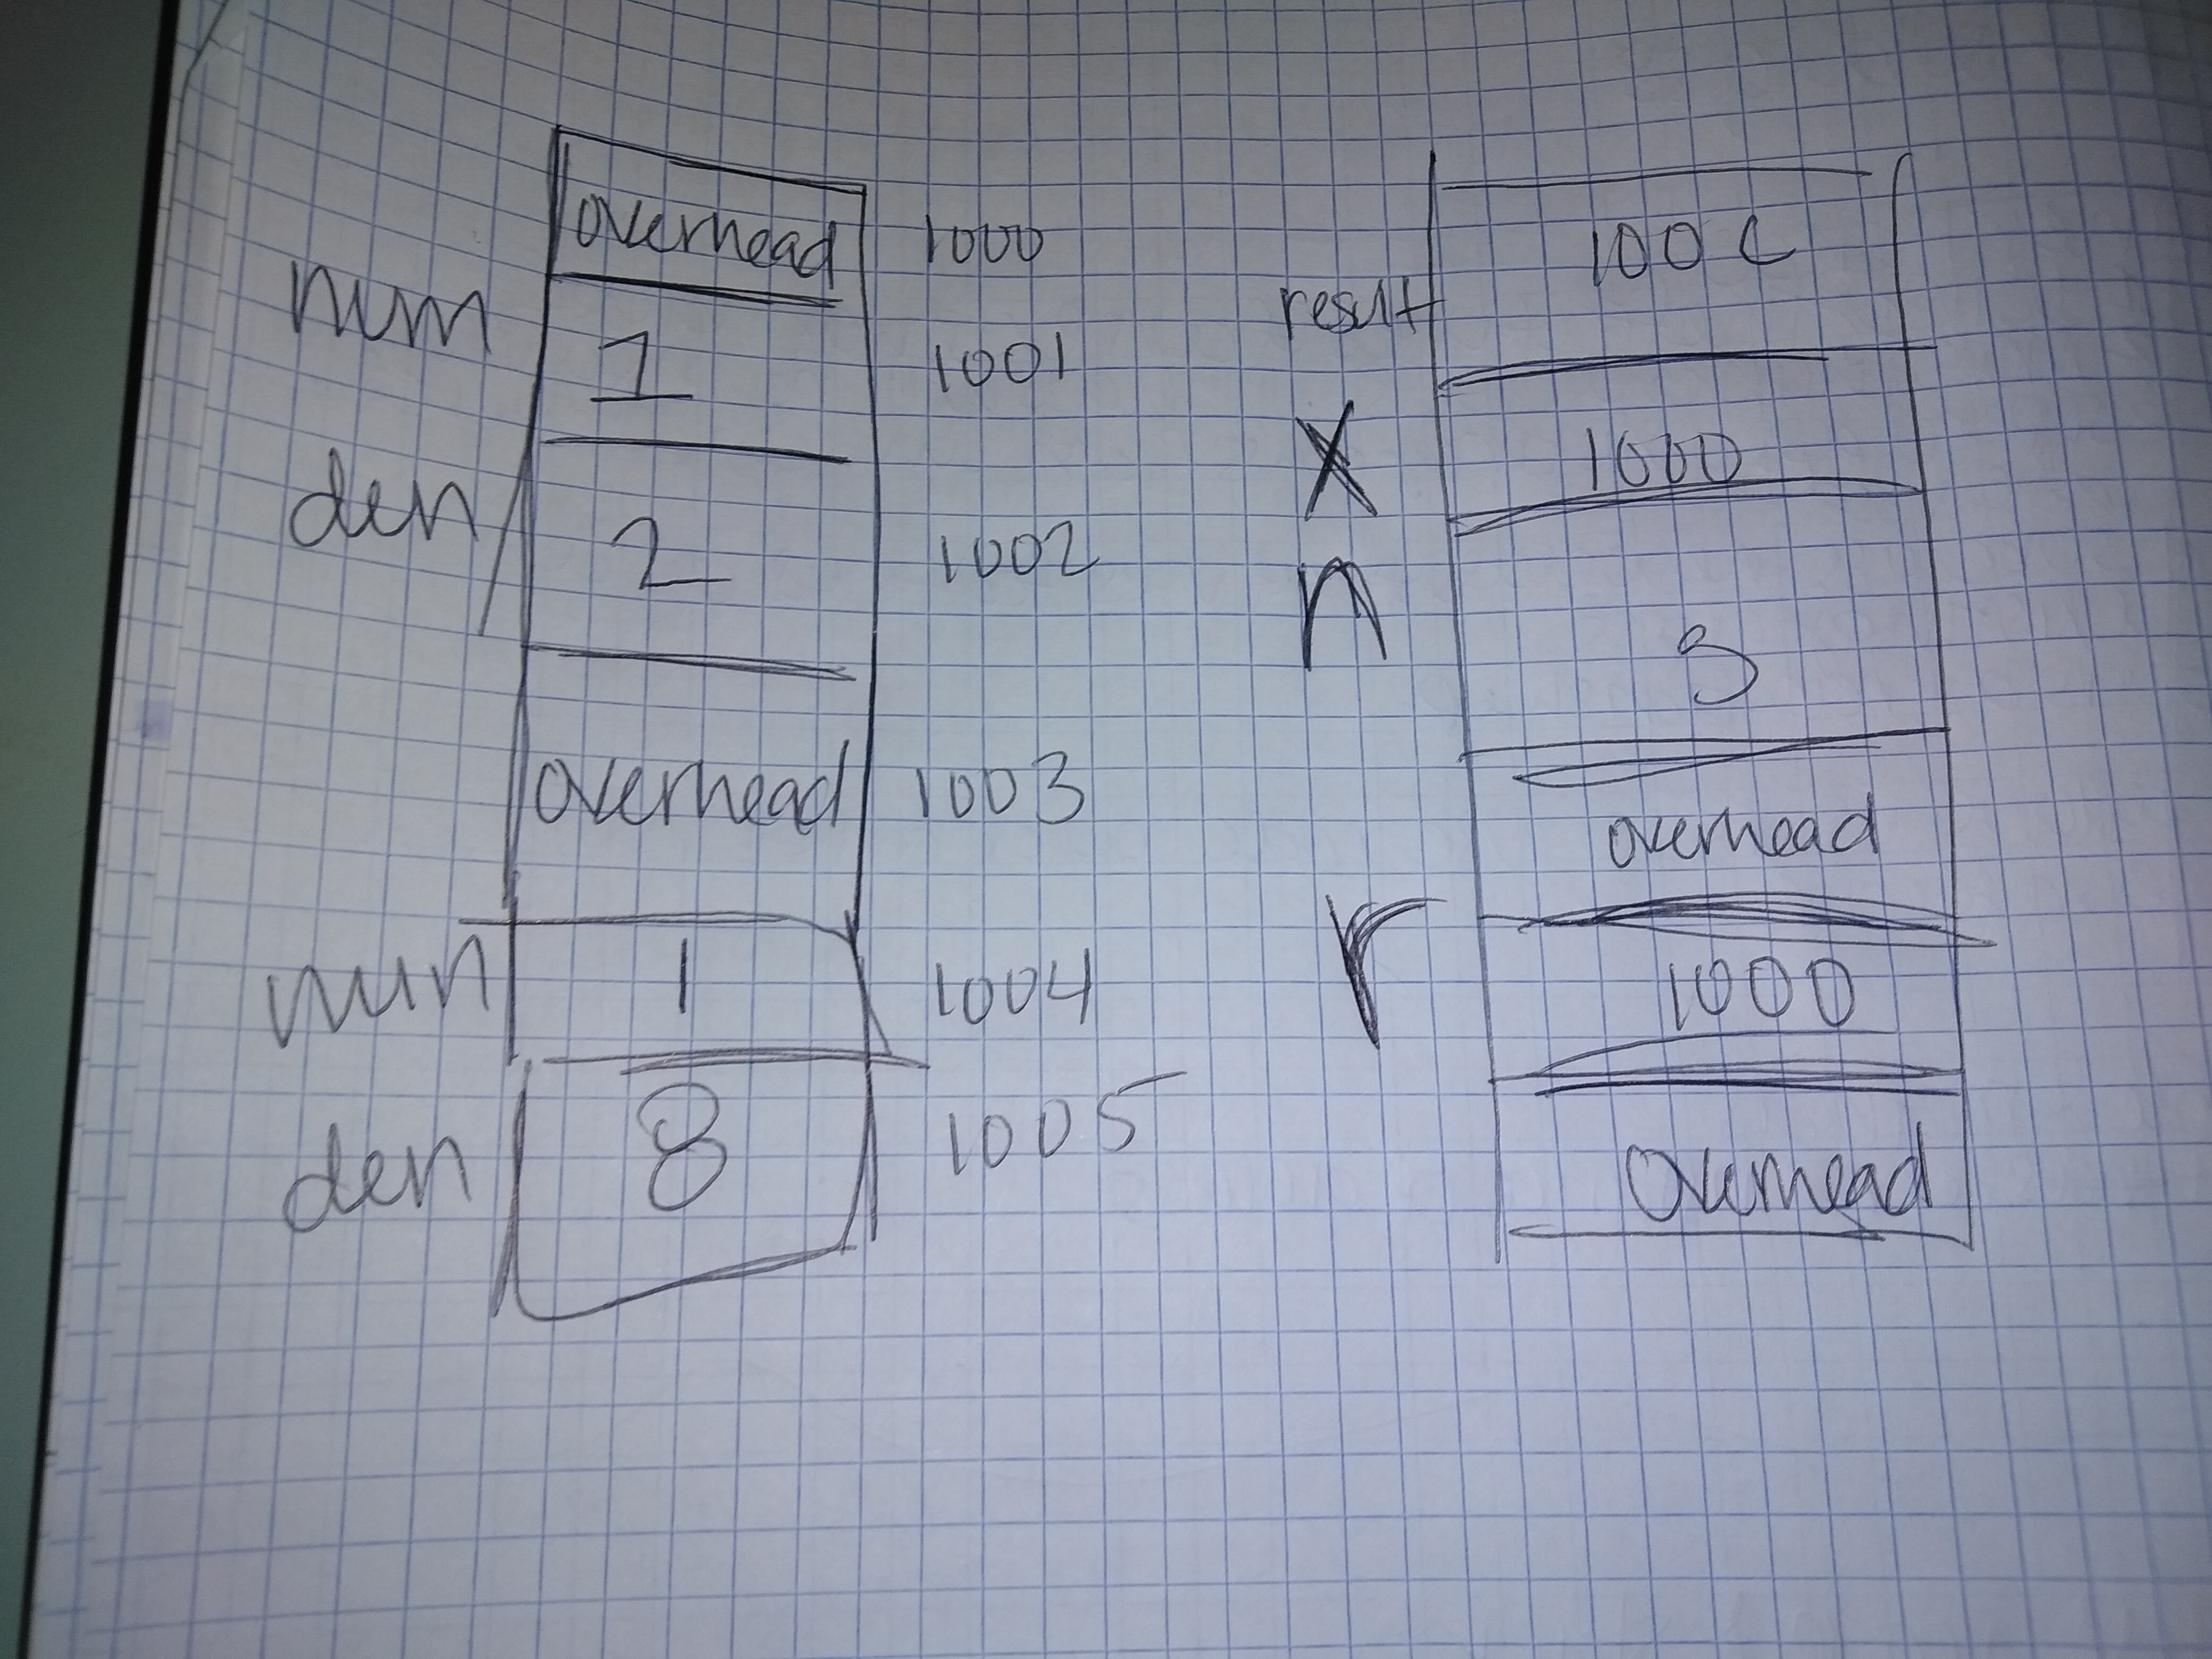 overhead 1000
num 1 1001
den 2 1002
overhead 1003
num 1 1004
den 8 1005
result 100C
x 1000
n 3
overhead
r 1000
overhead